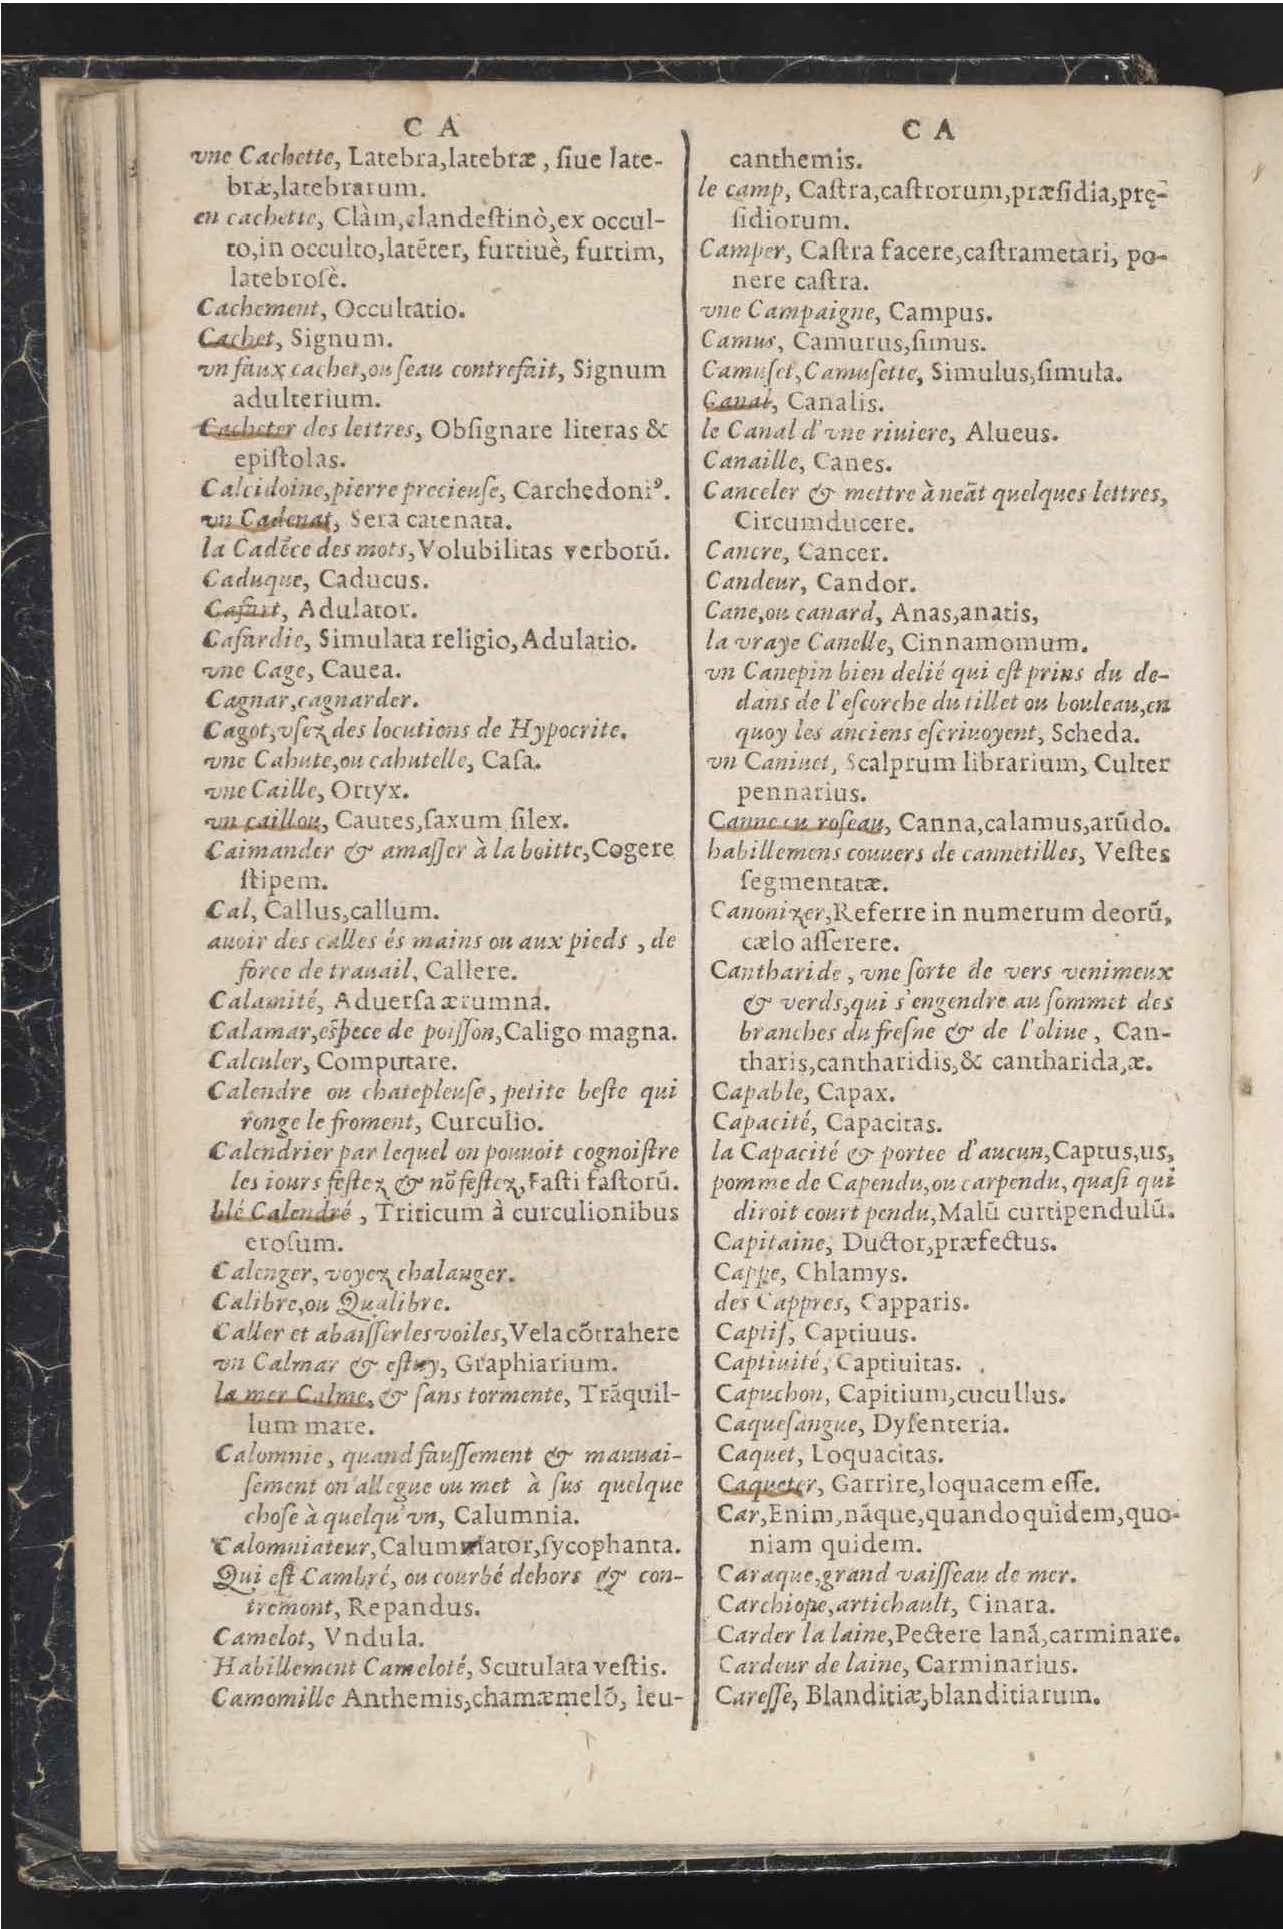 C A
vne Cachette, Latebra,latebræ, ſiue late-
bræ,latebrarum.
en cachette, Clàm,clandeſtinò,ex occul-
to,in occulto,latẽter, furtiuè, furtim,
latebroſè.
Cachement, Occultatio.
Cachet, Signum.
vn faux cachet,ou ſeau contrefait, Signum
adulterium.
Cacheter des lettres, Obſignare literas &
epiſtolas.
Calcidoine,pierre precieuſe, Carchedoniꝰ.
vn Cadenat, Sera catenata.
la Cadẽce des mots,Volubilitas verborũ.
Caduque, Caducus.
Cafart, Adulator.
Cafardie, Simulata religio,Adulatio.
vne Cage, Cauea.
Cagnar,cagnarder.
Cagot,vſez des locutions de Hypocrite.
vne Cahute,ou cahutelle, Caſa.
vne Caille, Ortyx.
vn caillou, Cautes,ſaxum ſilex.
Caimander & amaſſer à la boitte,Cogere
ſtipem.
Cal, Callus,callum.
auoir des calles és mains ou aux pieds, de
force de trauail, Callere.
Calamité, Aduerſa ærumna.
Calamar,eſpece de poiſſon,Caligo magna.
Calculer, Computare.
Calendre ou chatepleuſe, petite beſte qui
ronge le froment, Curculio.
Calendrier par lequel on pouuoit cognoiſtre
les iours feſtez & nõ feſtez,Faſti faſtorũ.
blé Calendré, Triticum à curculionibus
eroſum.
Calenger, voyez chalanger.
Calibre,ou Qualibre.
Caller et abaiſſer les voiles,Vela cõtrahere
vn Calmar & eſtuy, Graphiarium.
la mer Calme,& ſans tormente, Trãquil-
lum mare.
Calomnie, quand fauſſement & mauuai-
ſement on allegue ou met à ſus quelque
choſe à quelqu'vn, Calumnia.
Calomniateur,Calumniator,ſycophanta.
Qui eſt Cambré, ou courbé dehors & con-
tremont, Repandus.
Camelot, Vndula.
Habillement Cameloté, Scutulata veſtis.
Camomille Anthemis,chamæmelõ, leu-
C A
canthemis.
le camp, Caſtra,caſtrorum,præſidia,prę-
ſidiorum.
Camper, Caſtra facere,caſtrametari, po-
nere caſtra.
vne Campaigne, Campus.
Camus, Camurus,ſimus.
Camuſet,Camuſette, Simulus,ſimula.
Canal, Canalis.
le Canal d'vne riuiere, Alueus.
Canaille, Canes.
Canceler & mettre à neãt quelques lettres,
Circumducere.
Cancre, Cancer.
Candeur, Candor.
Cane,ou canard, Anas,anatis,
la vraye Canelle, Cinnamomum.
vn Canepin bien delié qui eſt prins du de-
dans de l'eſcorche du tillet ou bouleau,en
quoy les anciens eſcriuoyent, Scheda.
vn Caniuet, Scalprum librarium, Culter
pennarius.
Canne ou roſeau, Canna,calamus,arũdo.
habillemens couuers de cannetilles, Veſtes
ſegmentatæ.
Canonizer,Referre in numerum deorũ,
cælo aſſerere.
Cantharide, vne ſorte de vers venimeux
& verds,qui s'engendre au ſommet des
branches du freſne & de l'oliue, Can-
tharis,cantharidis,& cantharida,æ.
Capable, Capax.
Capacité, Capacitas.
la Capacité & portee d'aucun,Captus,us,
pomme de Capendu,ou carpendu, quaſi qui
diroit court pendu,Malũ curtipendulũ.
Capitaine, Ductor,præfectus.
Cappe, Chlamys.
des Cappres, Capparis.
Captif, Captiuus.
Captiuité, Captiuitas.
Capuchon, Capitium,cucullus.
Caqueſangue, Dyſenteria.
Caquet, Loquacitas.
Caqueter, Garrire,loquacem eſſe.
Car,Enim,nãque,quandoquidem,quo-
niam quidem.
Caraque,grand vaiſſeau de mer.
Carchiope,artichault, Cinara.
Carder la laine,Pectere lanã,carminare.
Cardeur de laine, Carminarius.
Careſſe, Blanditiæ,blanditiarum.